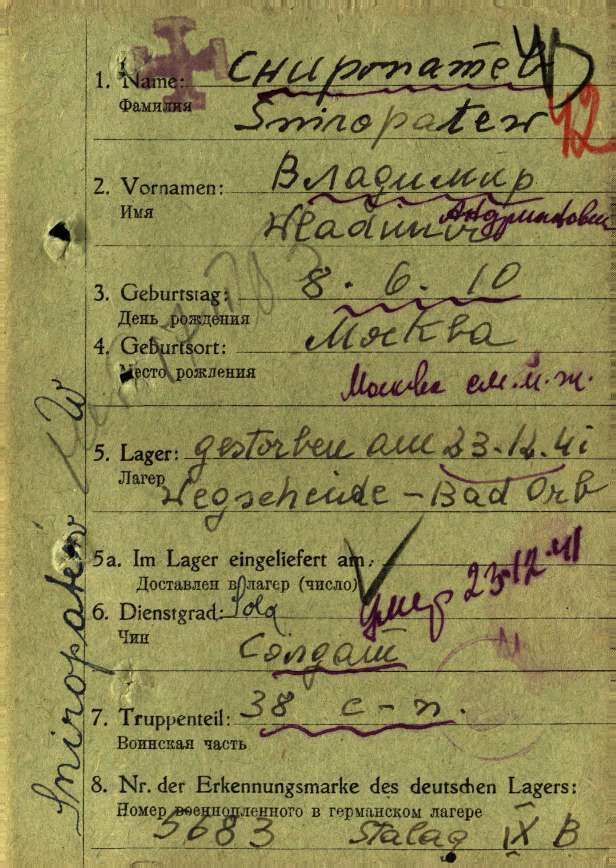 1. Name: Сниропатев
Фамилия
Sniropatew
42
2. Vornamen: Владимир
Имя
Wladimir Андрианович
3. Geburtstag: 8. 6. 10
День рождения
4. Geburtsort: Москва
Место рождения
Москва см. м. ж.
5. Lager: gestorben am 23.12.41
Лагерь
Wegscheide – Bad Orb
5a. Im Lager eingeliefert am:
Доставлен в лагерь (число)
умер 23.12.41
6. Dienstgrad: Sold
Чин
Солдат
7. Truppenteil: 38 с-п.
Воинская часть
8. Nr. der Erkennungsmarke des deutschen Lagers:
Номер военнопленного в германском лагере
5683 Stalag IX B
Sniropatew